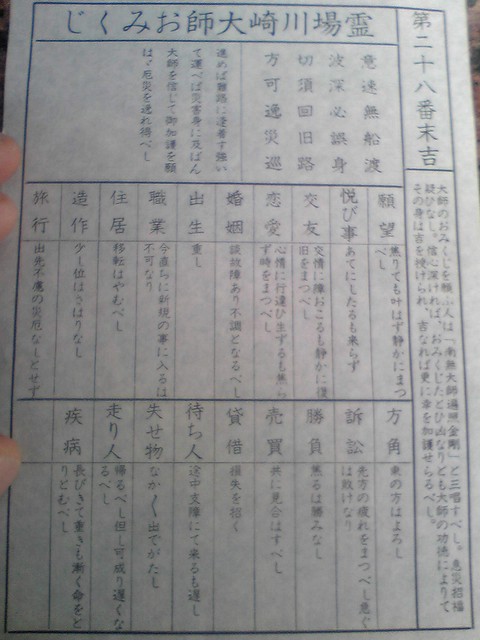 第二十八番末吉
大師のおみくじを願ふ人は「南無大師遍照金剛」と三唱すべし。息災招福
疑ひなし。信心深ければ、おみくじたとひ凶なりとも大師の功徳によりて
その身は吉を授けられ、吉なれば更に幸を加護せらるべし。
霊場川崎大師おみくじ
意速無船渡
波深必誤身
切須回旧路
方可逸災迍
進めば難路に逢着す強い
て運べば災害身に及ばん
大師を信じて御加護を願
はゞ厄災を逃れ得べし
願望
焦りても叶はず静かにまつ
べし
悦び事
あてにしたるも来らず
交友
交情に障おこるも静かに復
旧をまつべし
恋愛
心情に行違ひ生ずるも焦ら
ず時をまつべし
婚姻
談故障あり不調となるべし
出生
重し
職業
今直ちに新規の事に入るは
不可なり
住居
移転はやむべし
造作
少し位はさはりなし
旅行
出先不慮の災厄なしとせず
方角
東の方はよろし
訴訟
先方の疲れをまつべし急ぐ
は敗けなり
勝負
焦るは勝みなし
売買
共に見合はすべし
貸借
損失を招く
待ち人
途中支障にて来るも遅し
失せ物
なか〱出でがたし
走り人
帰るべし但し可成り遅くな
るべし
疾病
長びきて重きも漸く命をと
りとむべし